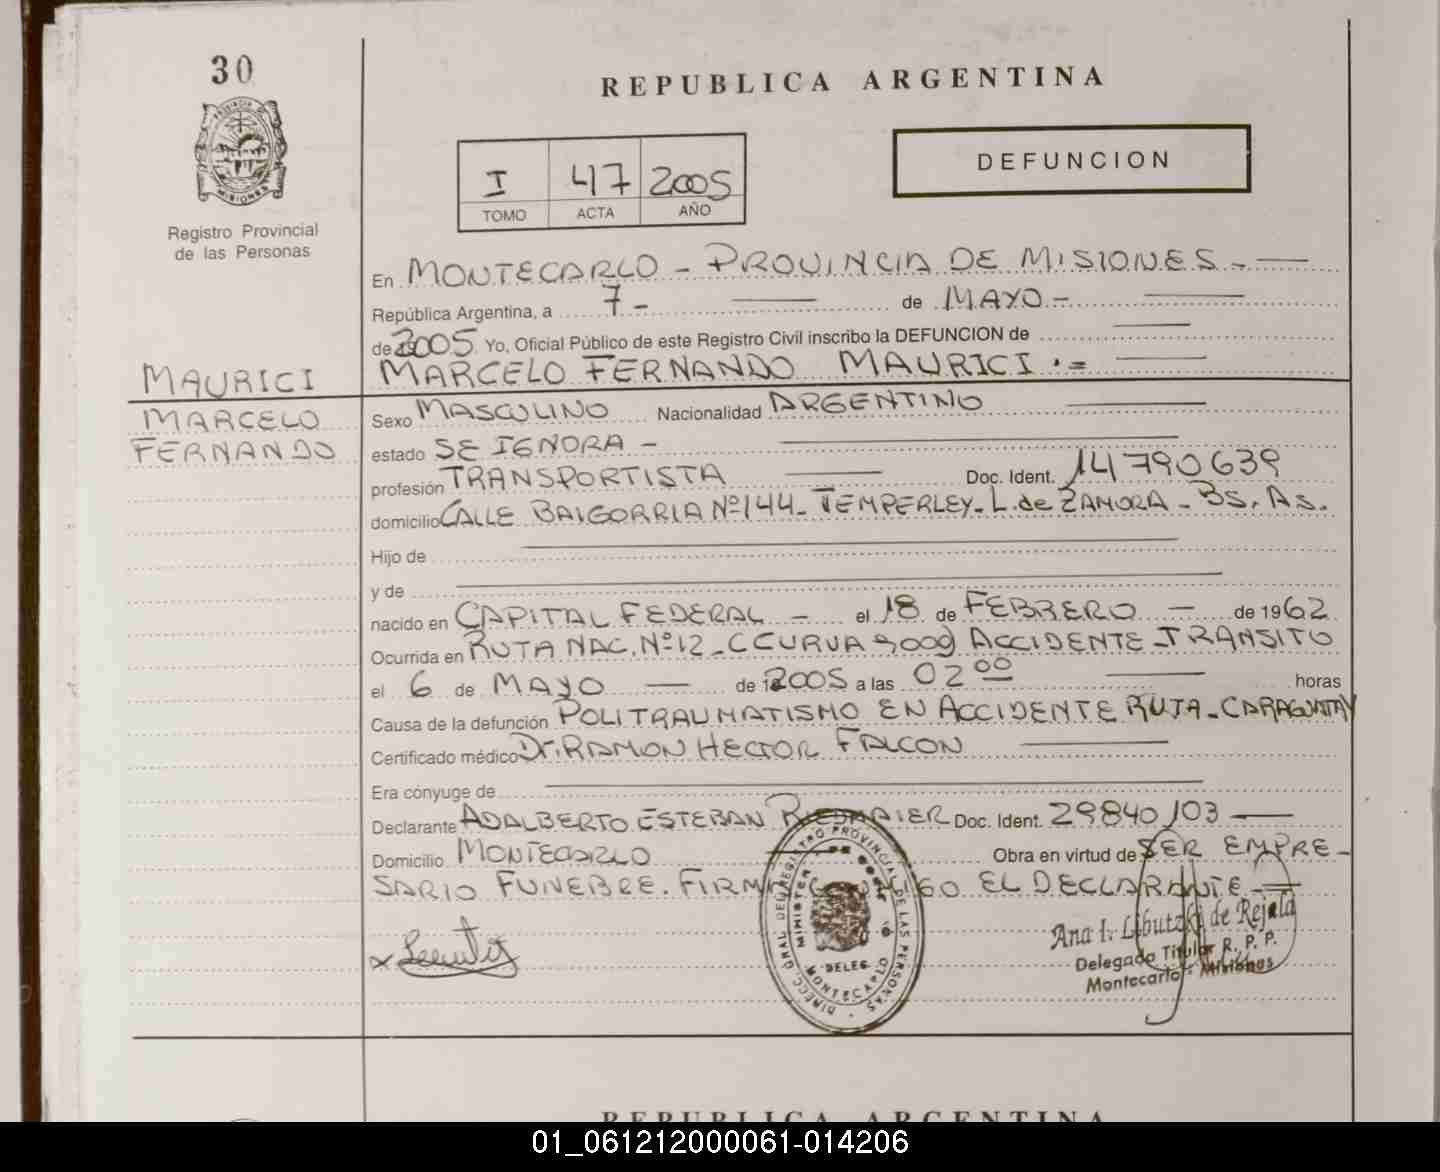 30
REPUBLICA ARGENTINA
DEFUNCION
I 47 2005
TOMO ACTA AÑO
Registro Provincial
de las Personas
En MONTECARLO - PROVINCIA DE MISIONES -
República Argentina, a 7 - de MAYO -
de 2005. Yo, Oficial Público de este Registro Civil inscribo la DEFUNCION de
MAURICI
MARCELO FERNANDO MAURICI
MARCELO
FERNANDO
Sexo MASCULINO Nacionalidad ARGENTINO
estado SE IGNORA -
profesión TRANSPORTISTA Doc. Ident. 14790639
domicilio CALLE BAIGORRIA Nº 144 - TEMPERLEY - L. de ZAMORA - BS. AS.
Hijo de
y de
nacido en CAPITAL FEDERAL - el 18 de FEBRERO - de 1962
Ocurrida en RUTA NAC. Nº 12 - (CURVA ACCIDENTE TRANSITO
el 6 de MAYO - de 2005 a las 02 00 horas
Causa de la defunción POLITRAUMATISMO EN ACCIDENTE RUTA - CARAGUATAY
Certificado médico Dr. RAMON HECTOR FALCON
Era cónyuge de
Declarante ADALBERTO ESTEBAN RIEDMAIER Doc. Ident. 29840103
Domicilio MONTECARLO Obra en virtud de SER EMPRE-
SARIO FUNEBRE. FIRMA EL DECLARANTE -
Ana I. Libutzki de Rejala
Delegado Titular R. P. P.
Montecarlo - Misiones
REPUBLICA ARGENTINA
01_061212000061-014206